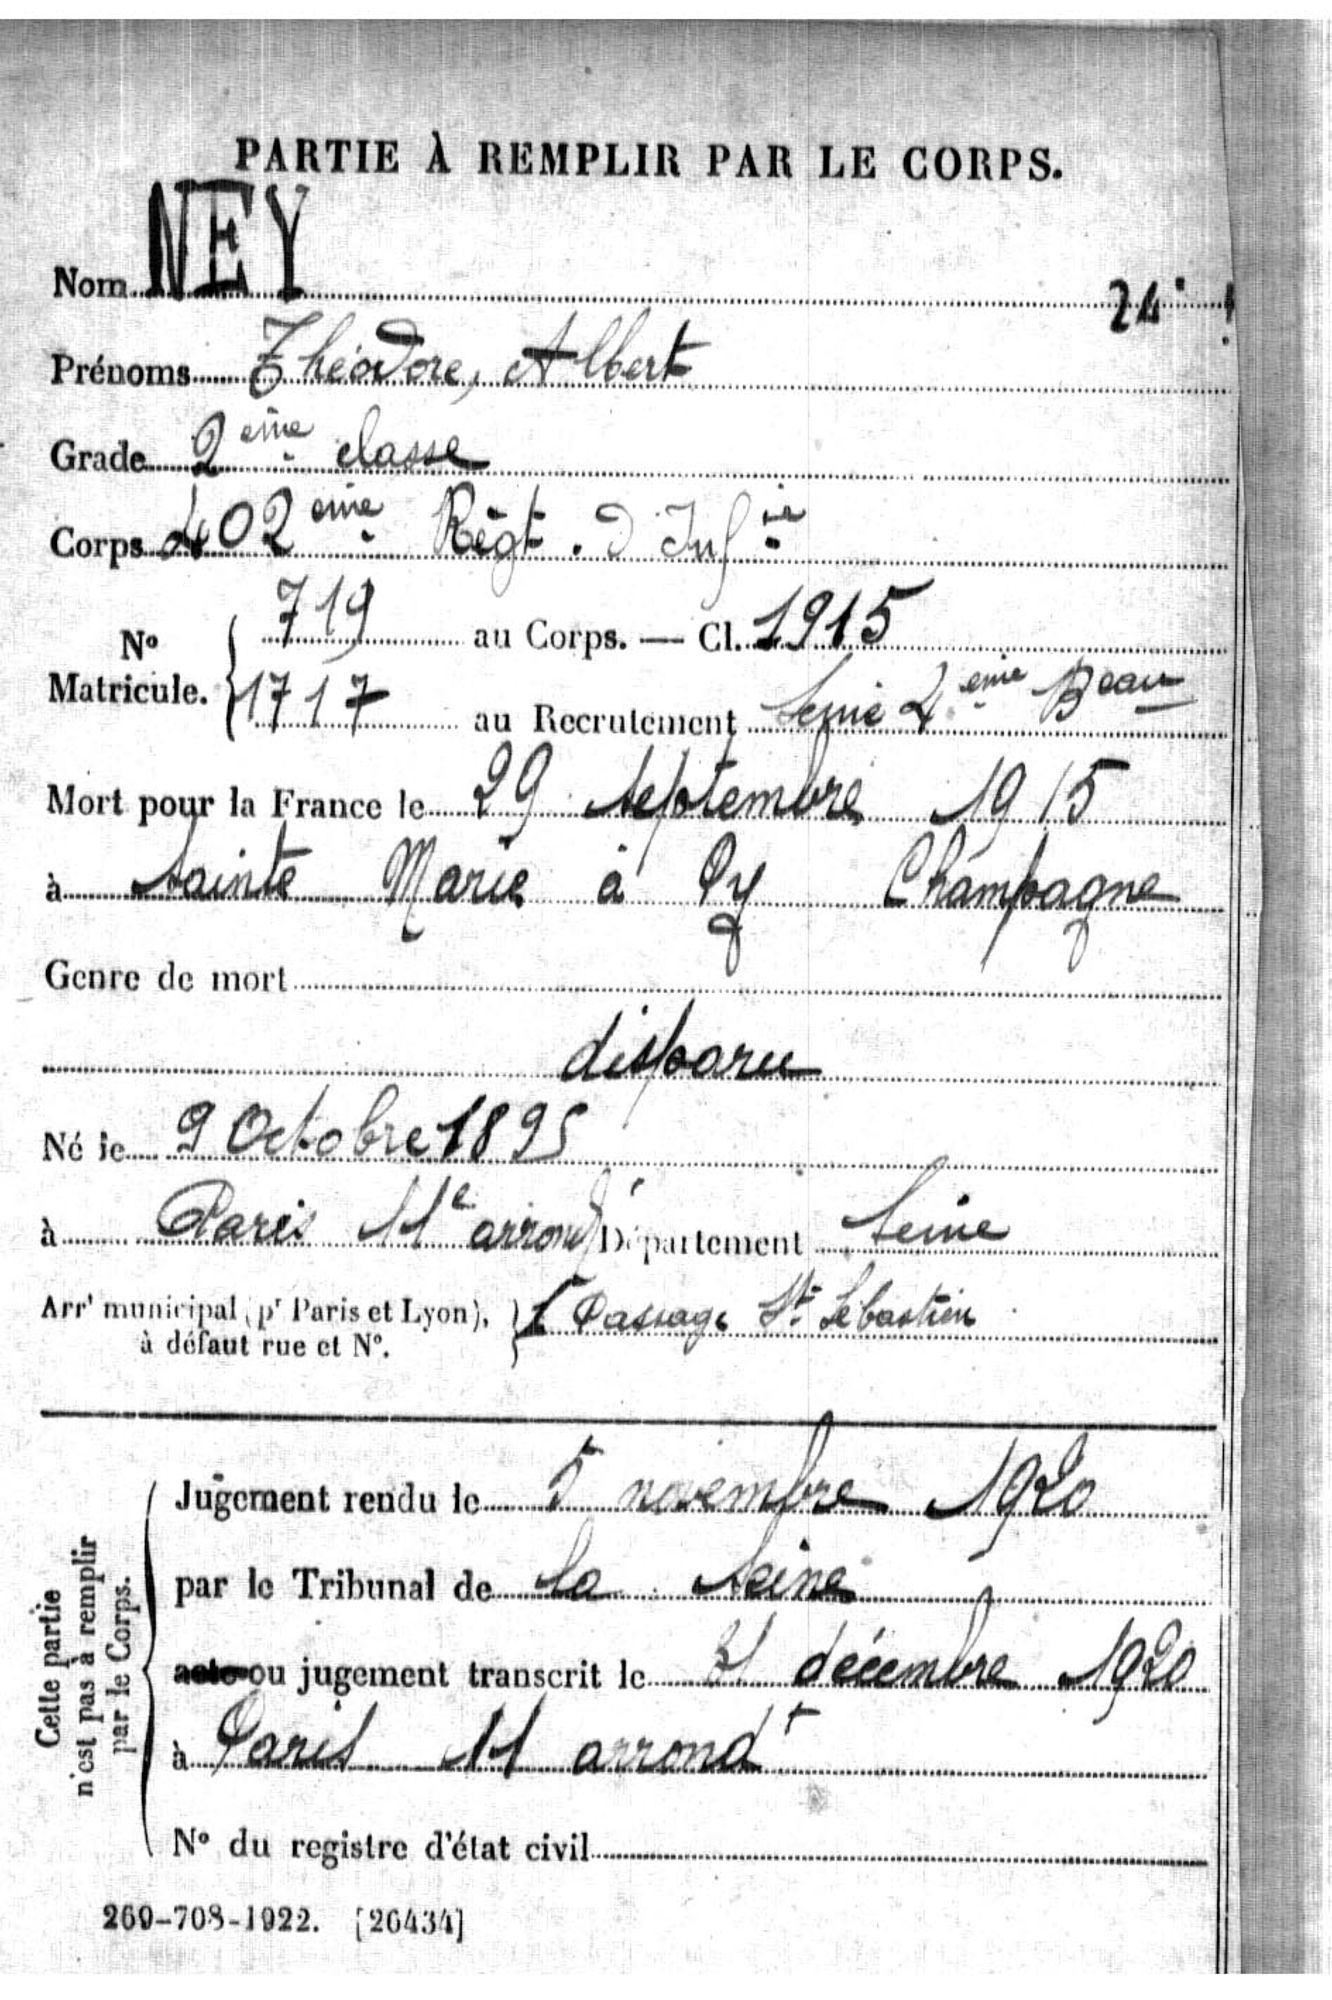 PARTIE À REMPLIR PAR LE CORPS.
Nom NEY
24
Prénoms Théodore, Albert
Grade 2ème classe
Corps 402ème Régt. d'Infie
No Matricule. 719 au Corps. — Cl. 1915
1717 au Recrutement Seine 4ème Beau
Mort pour la France le 29 septembre 1915
à Sainte Marie à Py Champagne
Genre de mort
disparu
Né le 9 Octobre 1895
à Paris 11e arrond Département Seine
Arrt municipal (pr Paris et Lyon),
à défaut rue et N°. Passage St Sébastien
Jugement rendu le 5 novembre 1920
par le Tribunal de la Seine
acte ou jugement transcrit le 31 décembre 1920
à Paris 11 arrondt
N° du registre d'état civil
Cette partie
n'est pas à remplir
par le Corps.
269-708-1922. [26434]